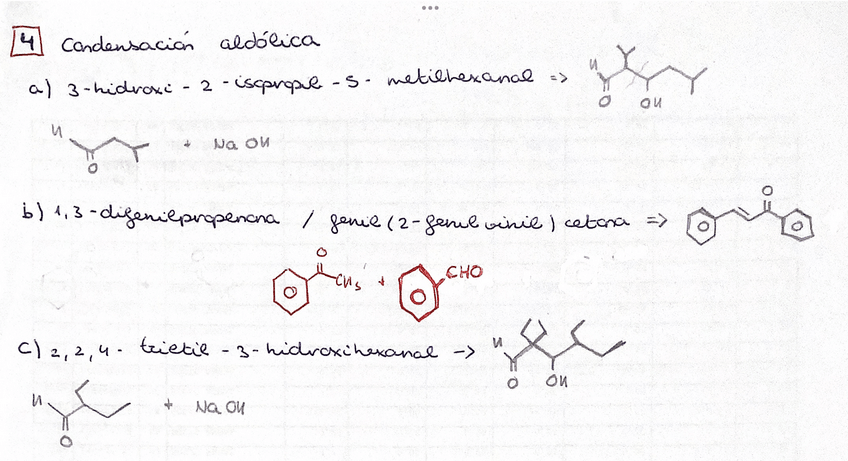 4 Condensación aldólica
a) 3-hidroxi-2-isopropil-5-metilhexanal =>
H O OH
H O + NaOH
b) 1,3-difenilpropenona / fenil (2-fenil vinil) cetona =>
O
O CH3 + CHO
c) 2,2,4-trietil-3-hidroxihexanal ->
H O OH
H O + NaOH